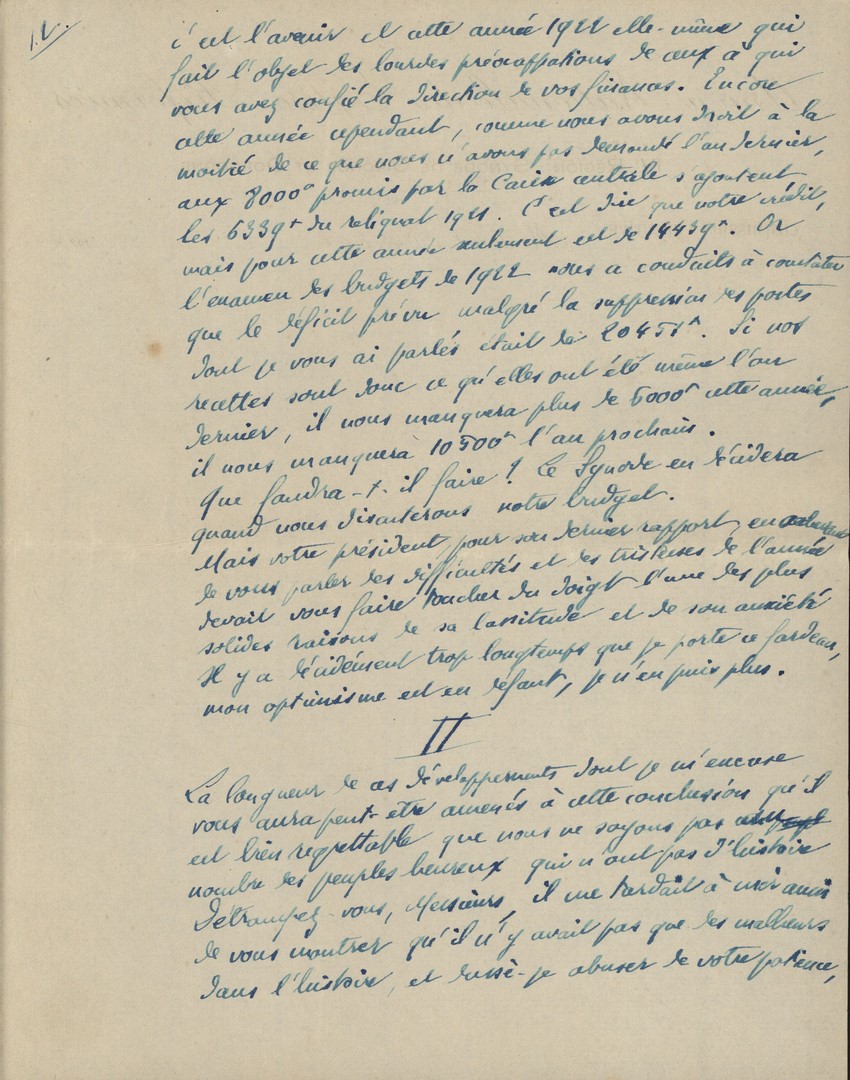 12/
c'est l'avenir et cette année 1922 elle-même qui
fait l'objet des lourdes préoccupations de ceux à qui
vous avez confié la direction de vos finances. Encore
cette année cependant, comme nous avons droit à la
moitié de ce que nous n'avons pas demandé l'an dernier,
aux 8000ᶠ promis par la Caisse centrale s'ajoutent
les 6339ᶠ du reliquat 1921. C'est dire que votre crédit,
mais pour cette année seulement est de 14439ᶠ. Or
l'examen des budgets de 1922 nous a conduits à constater
que le déficit prévu malgré la suppression des postes
dont je vous ai parlés était de 20451ᶠ. Si nos
recettes sont donc ce qu'elles ont été même l'an
dernier, il nous manquera plus de 6000ᶠ cette année,
il nous manquera 10500ᶠ l'an prochain.
Que faudra-t-il faire ? Le Synode en décidera
quand nous discuterons notre budget.
Mais votre président pour son dernier rapport, en
de vous parler des difficultés et des tristesses de l'année
devait vous faire toucher du doigt l'une des plus
solides raisons de sa lassitude et de son anxiété
Il y a décidément trop longtemps que je porte ce fardeau,
mon optimisme est en défaut, je n'en puis plus.
II
La longueur de ces développements dont je m'excuse
vous aura peut-être amenés à cette conclusion qu'il
est bien regrettable que nous ne soyons pas au
nombre des peuples heureux qui n'ont pas d'histoire
Détrompez-vous, Messieurs, il me tardait à moi aussi
de vous montrer qu'il n'y avait pas que des malheurs
dans l'histoire, et dussé-je abuser de votre patience,